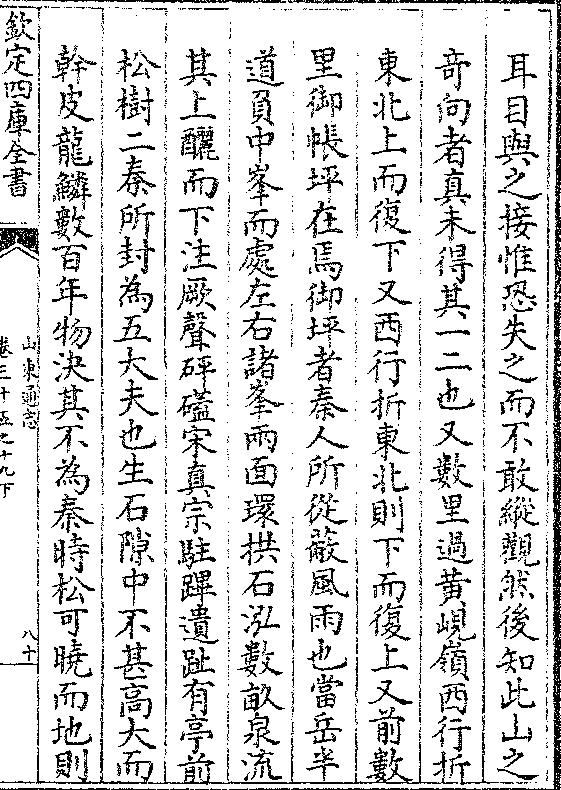 耳目與之接惟恐失之而不敢縱觀然後知此山之
竒向者真未得其一二也又數里過黄峴嶺西行折
東北上而復下又西行折東北則下而復上又前數
里御帳坪在焉御坪者秦人所從蔽風雨也當岳半
道負中峯而處左右諸峯兩面環拱石泓數畝泉流
其上釃而下注厥聲砰礚宋真宗駐蹕遺趾有亭前
松樹二秦所封為五大夫也生石隙中不甚高大而
幹皮龍鱗數百年物決其不為秦時松可曉而地則
欽定四庫全書
山東通志
卷三十五之十九下
八十